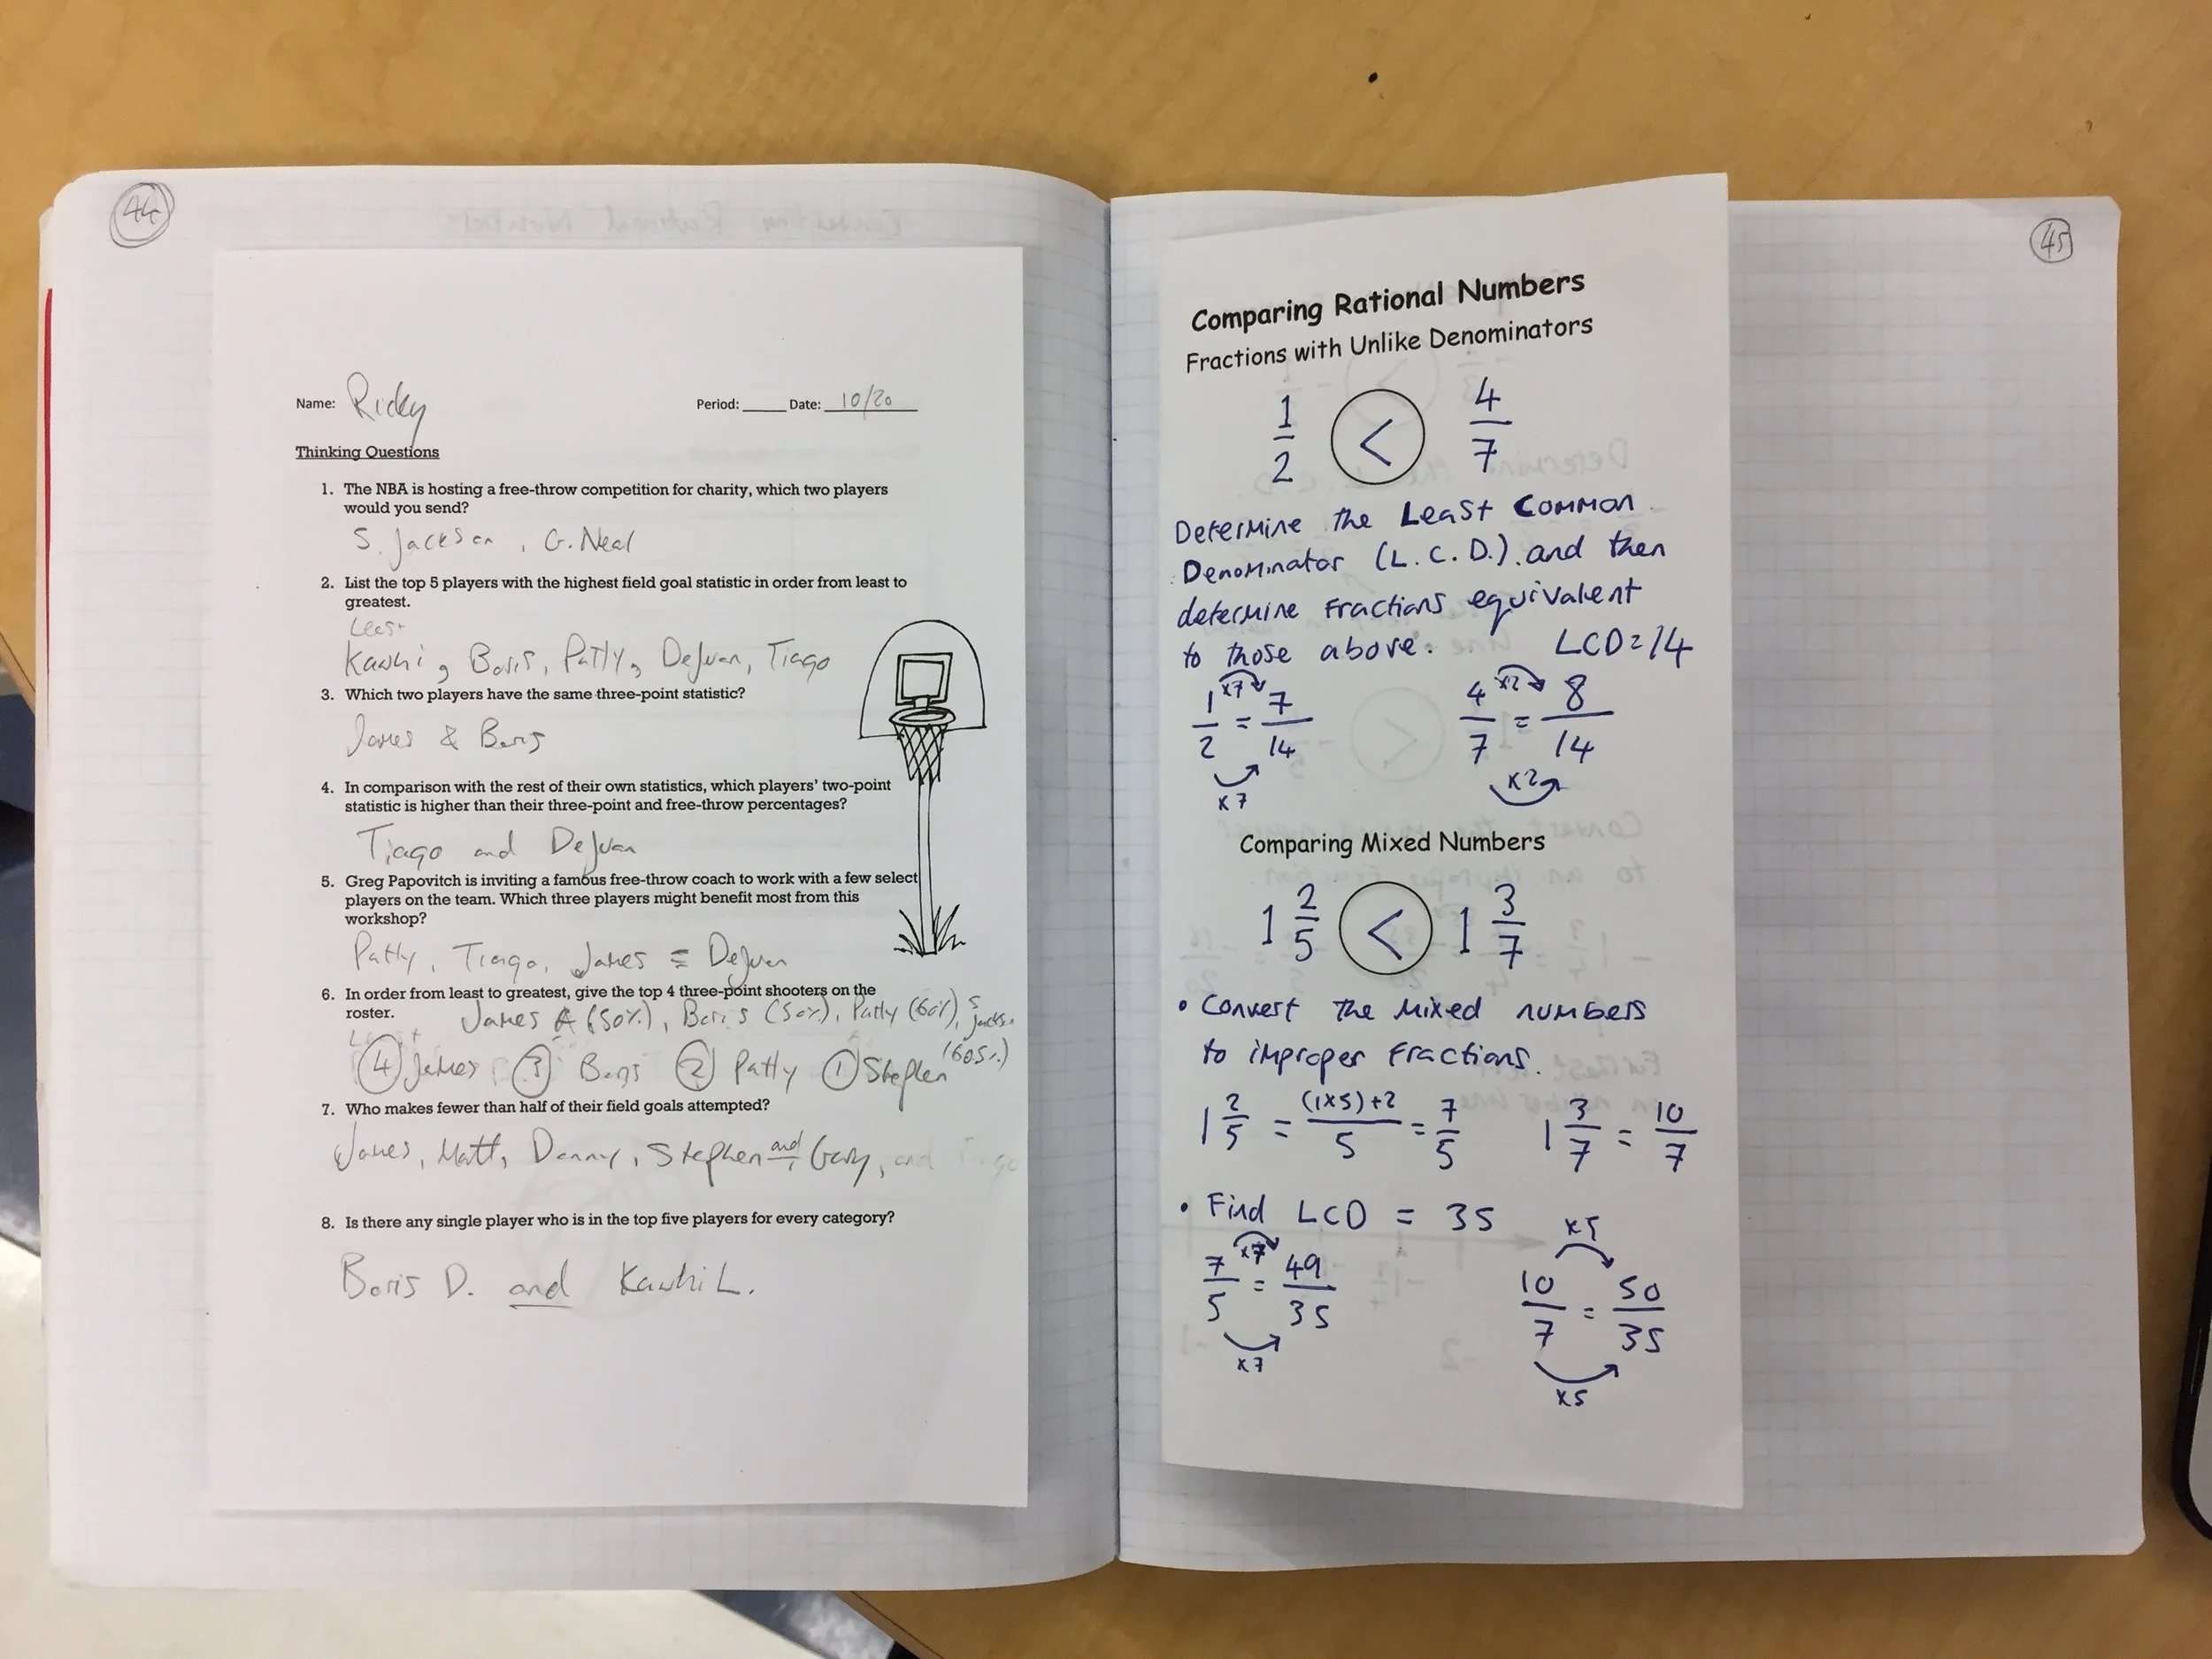 44
Name: Ricky Period: _____ Date: 10/20
Thinking Questions
1. The NBA is hosting a free-throw competition for charity, which two players
would you send?
S. Jackson, G. Neal
2. List the top 5 players with the highest field goal statistic in order from least to
greatest.
Least
Kawhi, Boris, Patty, DeJuan, Tiago
3. Which two players have the same three-point statistic?
James & Boris
4. In comparison with the rest of their own statistics, which players' two-point
statistic is higher than their three-point and free-throw percentages?
Tiago and DeJuan
5. Greg Papovitch is inviting a famous free-throw coach to work with a few select
players on the team. Which three players might benefit most from this
workshop?
Patty, Tiago, James = DeJuan
6. In order from least to greatest, give the top 4 three-point shooters on the
roster.
James A (50%), Boris (50%), Patty (60%), S Jackson
(60.5%)
④ James ③ Boris ② Patty ① Stephen
7. Who makes fewer than half of their field goals attempted?
James, Matt, Danny, Stephen and Gary, and Tiago
8. Is there any single player who is in the top five players for every category?
Boris D. and Kawhi L.
45
Comparing Rational Numbers
Fractions with Unlike Denominators
1/2 < 4/7
Determine the Least Common
Denominator (L.C.D.) and then
determine fractions equivalent
to those above.
LCD=14
x7 x2
1/2 = 7/14 4/7 = 8/14
x7 x2
Comparing Mixed Numbers
1 2/5 < 1 3/7
• Convert the mixed numbers
to improper fractions.
1 2/5 = (1x5)+2/5 = 7/5 1 3/7 = 10/7
• Find LCD = 35
x7 x5
7/5 = 49/35 10/7 = 50/35
x7 x5